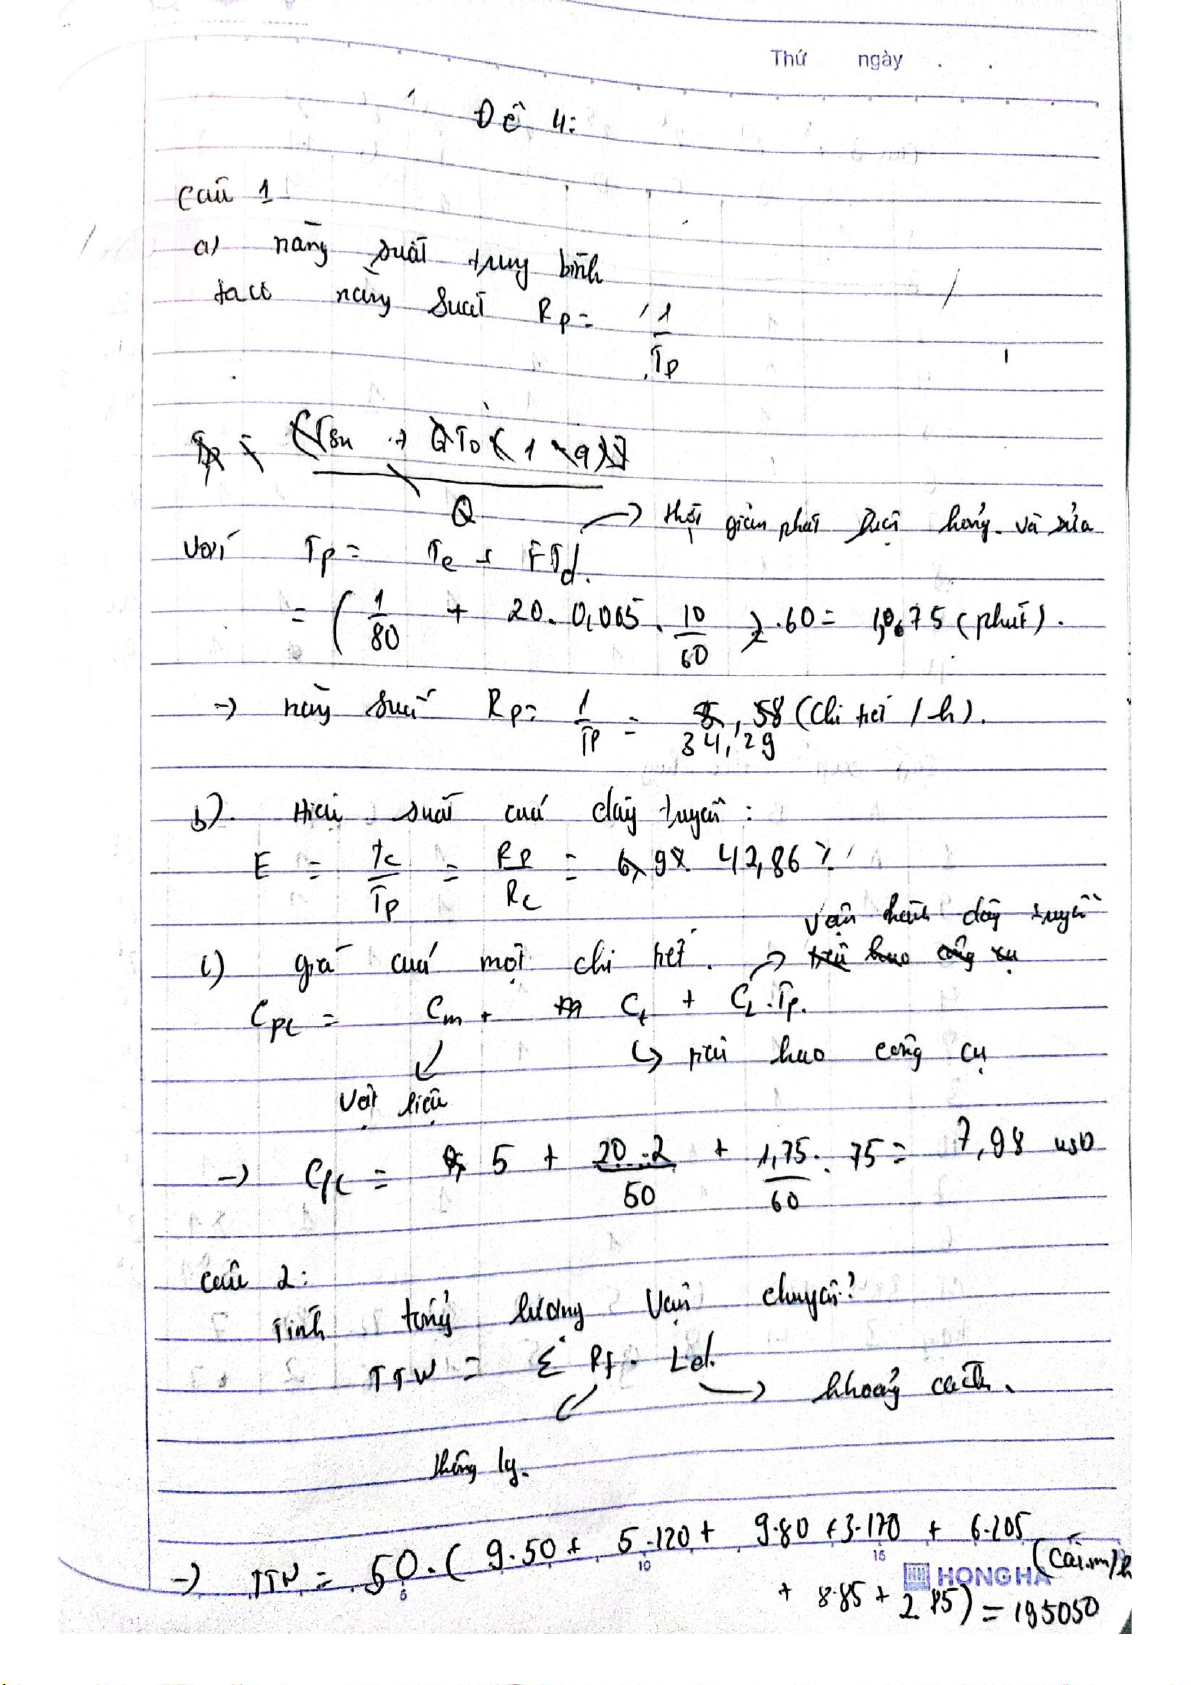 Thứ ngày . .
Đề 4:
Câu 1
a) năng suất trung bình
ta có năng suất Rp = 1/Tp
với Tp = Te + FTd. → thời gian phát hiện hỏng và sửa
= ( 1/80 + 20. 0,005. 10/60 ).60 = 1,75 (phút).
→ năng suất Rp = 1/Tp = 34,29 (chi tiết / h).
b). Hiệu suất của dây truyền :
E = Tc/Tp = Rp/Rc = 42,86 %
c) giá của một chi tiết. → vận hành dây truyền
Cpc = Cm + Ct + CL.Tp.
↳ hao công cụ
vật liệu
→ Cpc = 5 + 20.2/50 + 1,75/60 . 75 = 7,98 USD
Câu 2:
Tính tổng lượng vận chuyển?
TTW = Σ Rf. Ld. → khoảng cách.
→ TTW = 50.( 9.50 + 5.120 + 9.80 + 3.170 + 6.205
+ 8.85 + 2.85) = 195050 (cái.m)/h
5 10 15
HH HONG HA